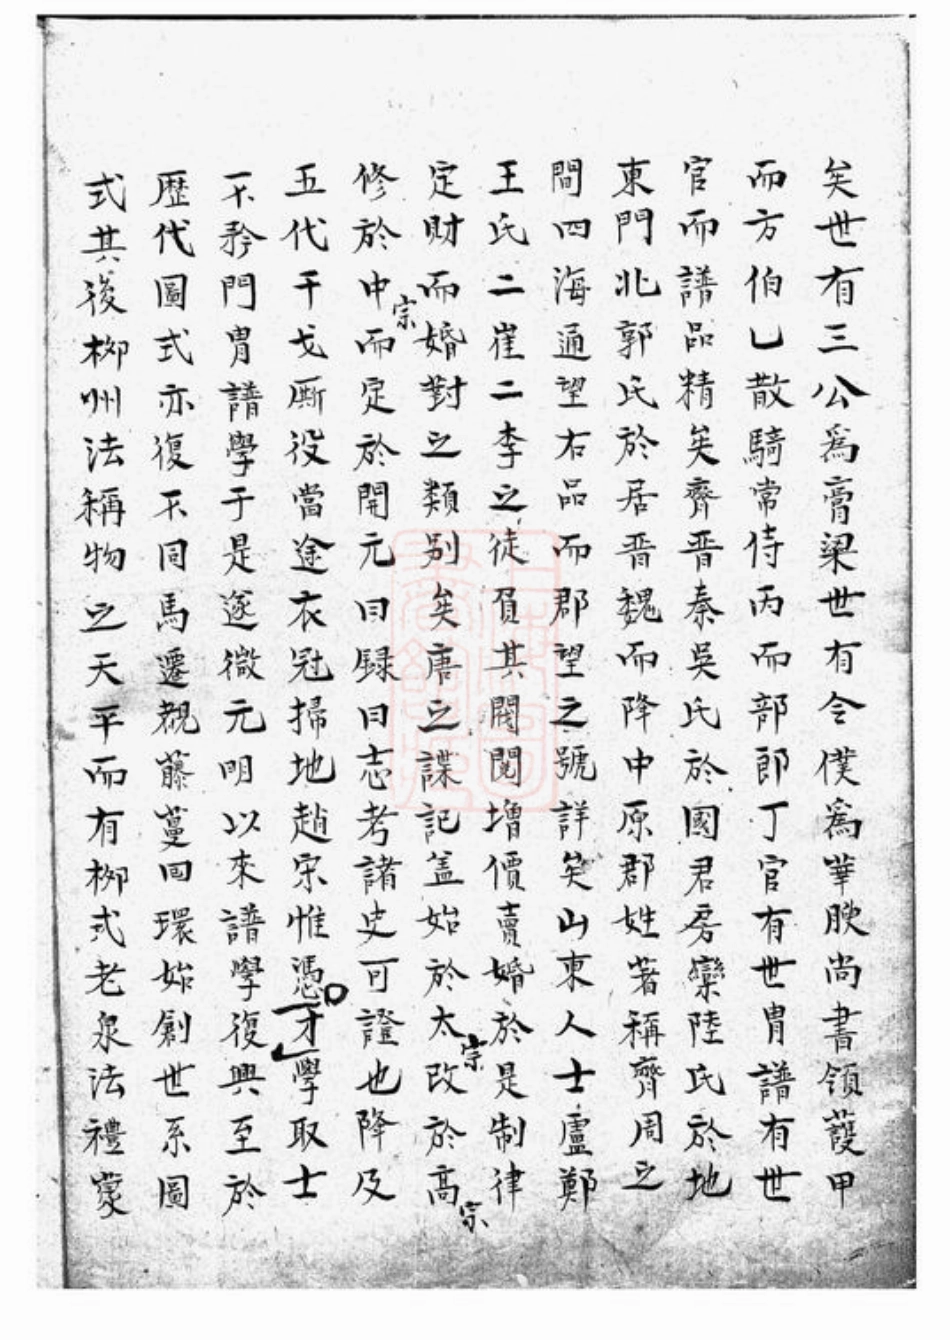 矣世有三公爲膏粱世有令僕爲華腴尚書領護甲
而方伯乚散騎常侍丙而部郎丁官有世冑譜有世
官而譜品精矣齊晋秦吳氏於國君房欒陸氏於地
東門北郭氏於居晋魏而降中原郡姓著稱齊周之
間四海通望右品而郡望之號詳矣山東人士盧鄭
王氏二崔二李之徒負其閥閱增價賣婚於是制律
定財而婚對之類别矣唐之諜記盖始於太宗改於高宗
修於中宗而定於開元曰録曰志考諸史可證也降及
五代干戈厮役當途衣冠掃地趙宋惟憑才學取士
不矜門冑譜學于是遂微元明以來譜學復興至於
歷代圖式亦復不同馬遷覩藤蔓回環始創世系圖
式其後栁州法稱物之天平而有栁式老泉法禮蒙